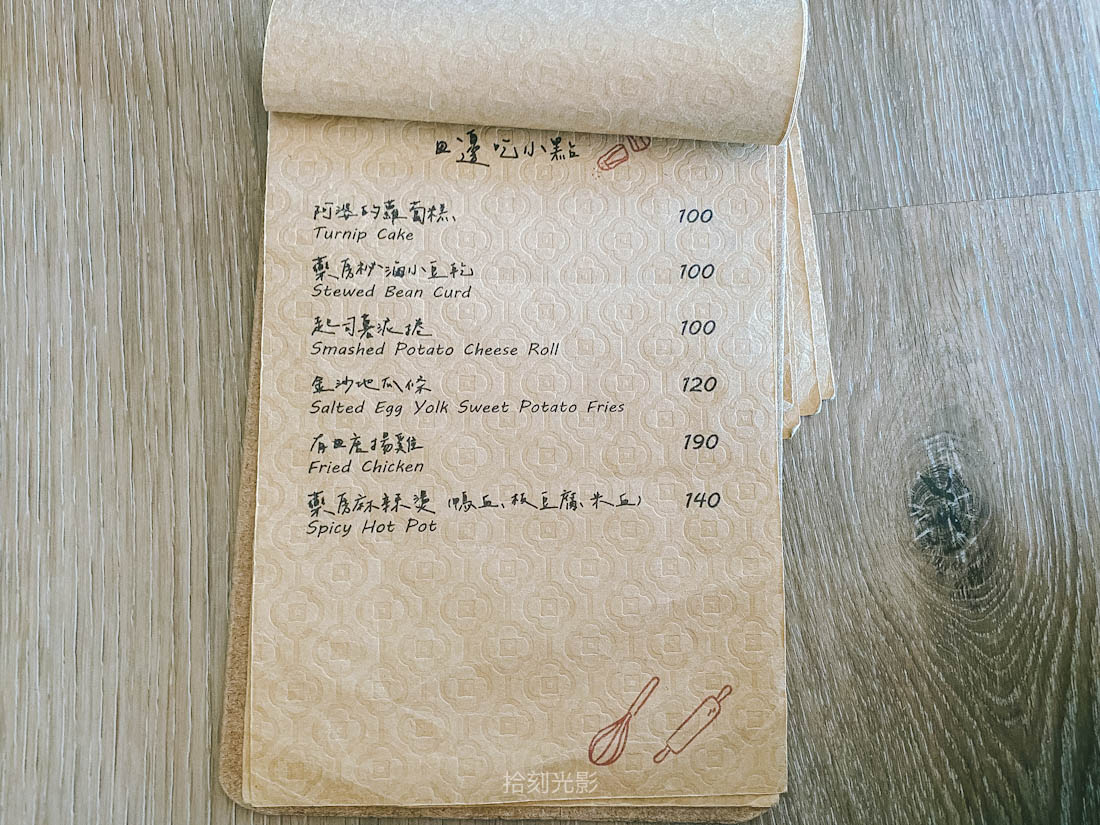 邊吃小點
阿婆的蘿蔔糕 100
Turnip Cake
藥房秘滷小豆乾 100
Stewed Bean Curd
起司薯泥捲 100
Smashed Potato Cheese Roll
金沙地瓜條 120
Salted Egg Yolk Sweet Potato Fries
唐揚雞 190
Fried Chicken
藥房麻辣燙(鴨血、板豆腐、米血) 140
Spicy Hot Pot
拾刻光影